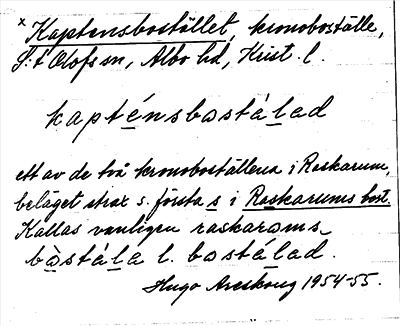 x Kaptensbostället, kronoboställe,
S:t Olofs sn, Albo hd, Krist. l.
kapténsbostálad
ett av de två kronoboställena i Raskarum,
beläget strax s. första s i Raskarums bost.
Kallas vanligen raskaroms
bòstála l. bostálad.
Hugo Areskoug 1954-55.